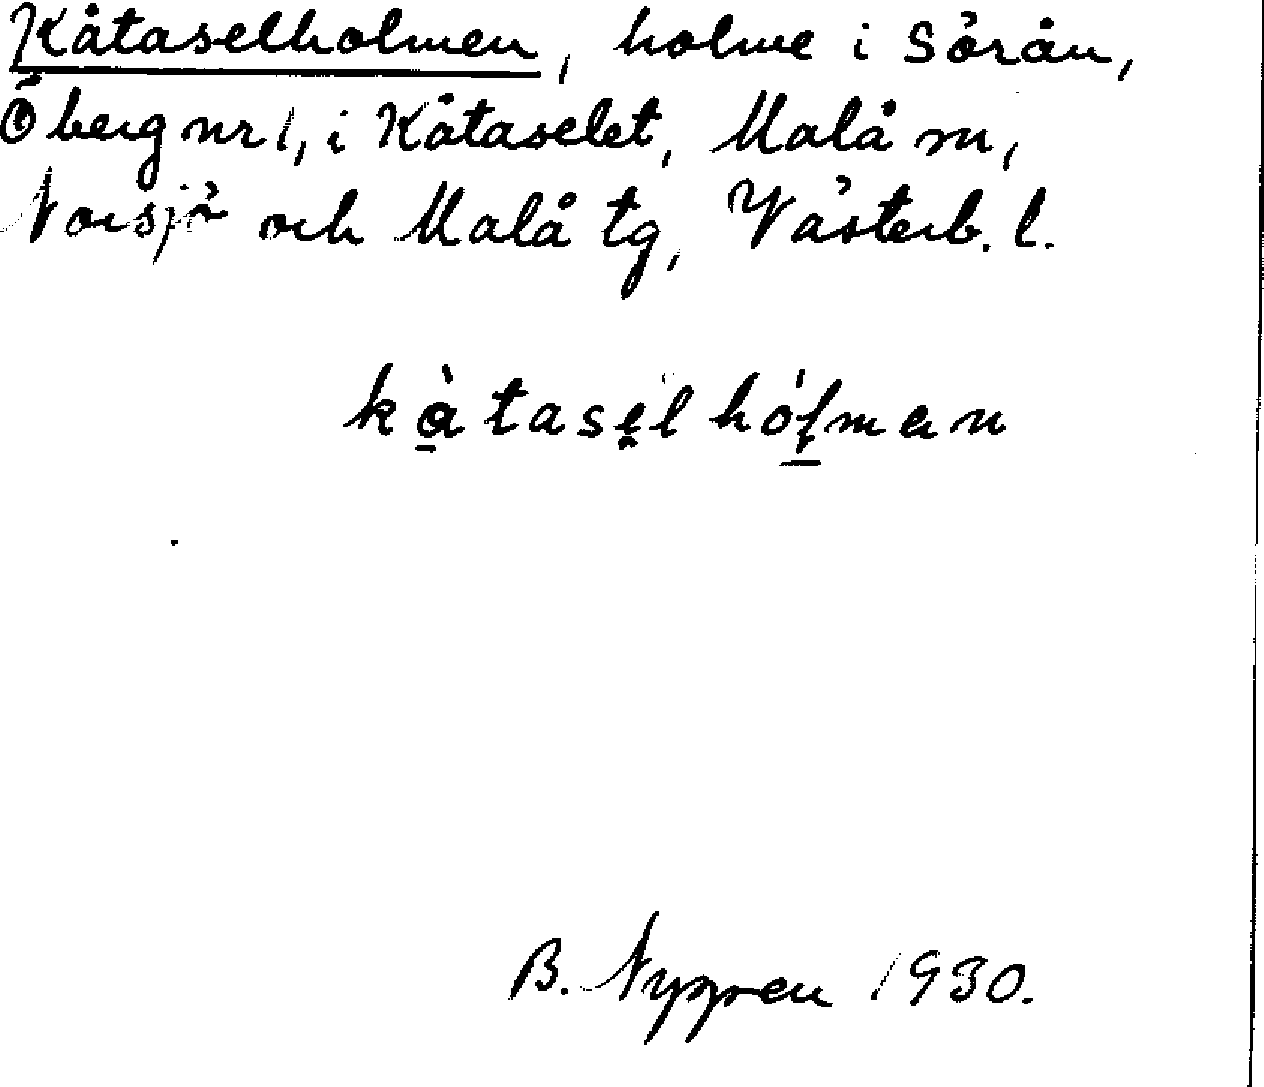 Kåtaselholmen, holme i Sörån,
Öberg nr 1, i Kåtaselet, Malå sn,
Norsjö och Malå tg, Västerb. l.
kàtasel hólman
B. Nygren 1930.